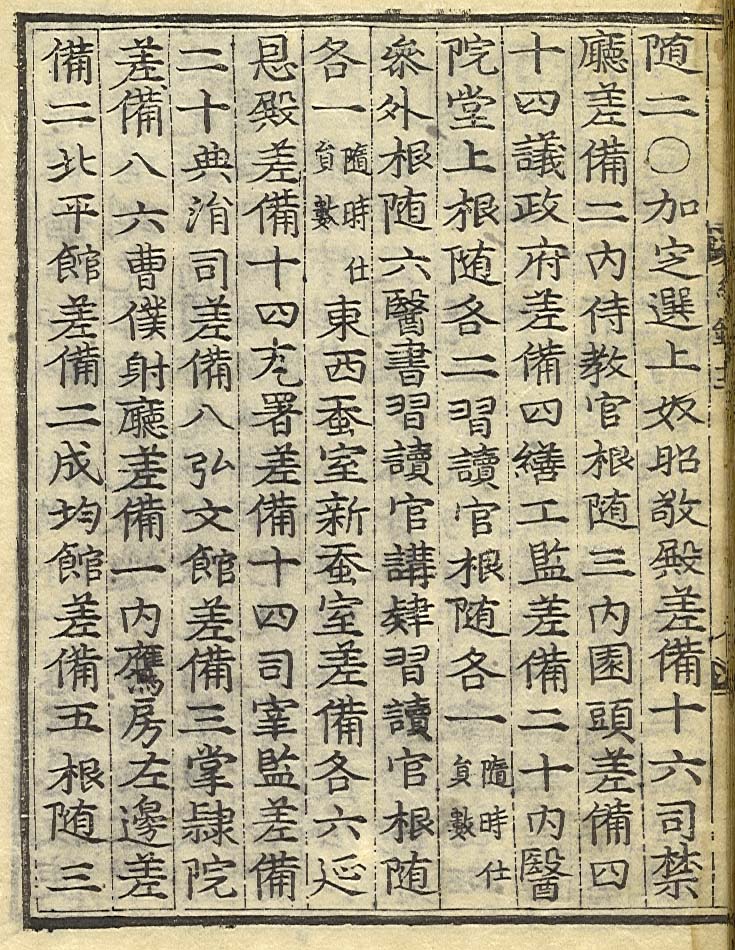 随二〇加定選上奴昭敬殿差備十六司禁
廳差備二內侍教官根随三內園頭差備四
十四議政府差備四繕工監差備二十內醫
院堂上根随各二習讀官根随各一隨時仕員數
衆外根随六醫書習讀官講肄習讀官根随
各一隨時仕員數東西蚕室新蚕室差備各六延
恩殿差備十四瓦署差備十四司宰監差備
二十典涓司差備八弘文館差備三掌隷院
差備八六曹僕射廳差備一內鷹房左邊差
備二北平館差備二成均館差備五根随三